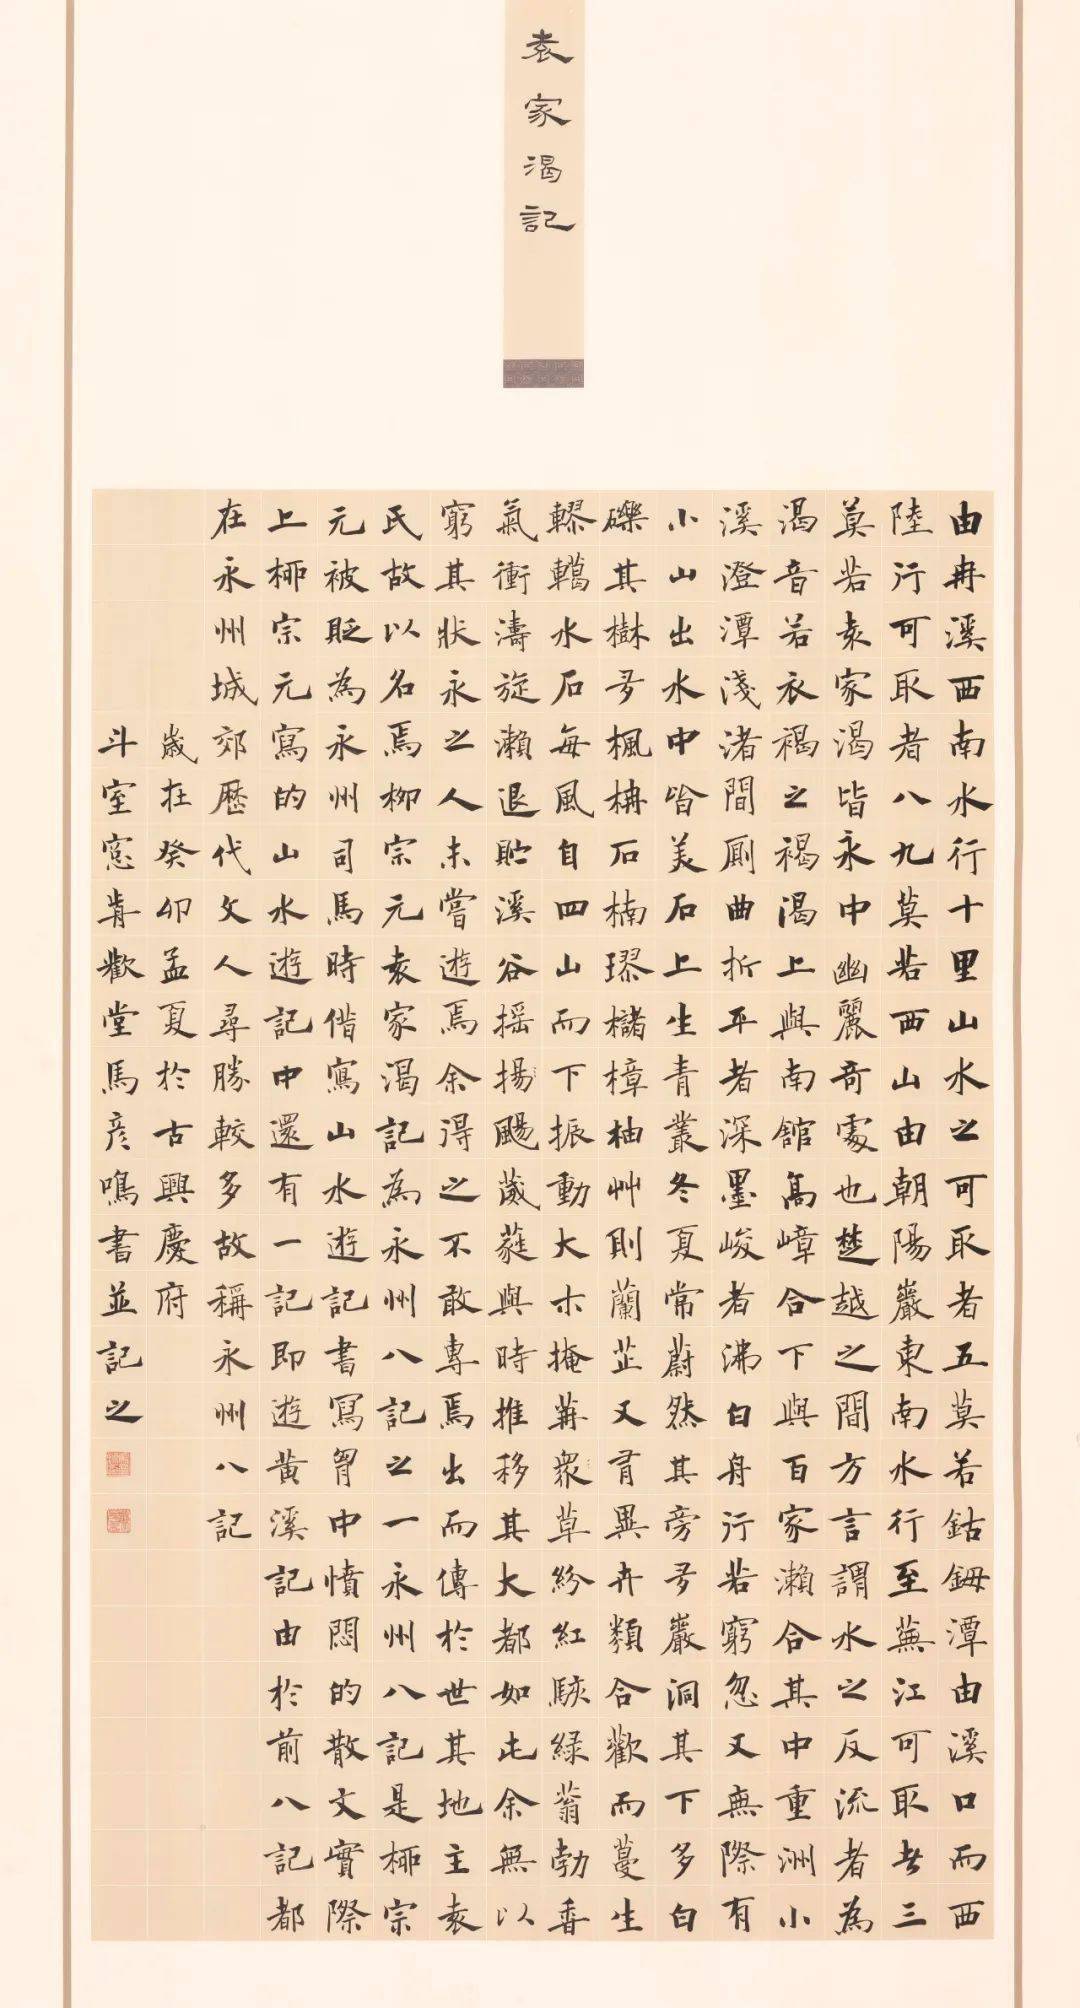 袁家渴記
由冉溪西南水行十里山水之可取者五莫若鈷鉧潭由溪口而西
陸行可取者八九莫若西山由朝陽巖東南水行至蕪江可取者三
莫若袁家渴皆永中幽麗奇處也楚越之間方言謂水之反流者為
渴音若衣褐之褐渴上與南館高嶂合下與百家瀨合其中重洲小
溪澄潭淺渚間廁曲折平者深墨峻者沸白舟行若窮忽又無際有
小山出水中皆美石上生青叢冬夏常蔚然其旁多巖洞其下多白
礫其樹多楓柟石楠璆櫧樟柚艸則蘭芷又有異卉類合歡而蔓生
轇轕水石每風自四山而下振動大木掩苒衆草紛紅駭綠蓊勃香
氣衝濤旋瀨退貯溪谷搖揚颺葳蕤與時推移其大都如此余無以
窮其狀永之人未嘗遊焉余得之不敢專焉出而傳於世其地主袁
氏故以名焉柳宗元袁家渴記為永州八記之一永州八記是柳宗
元被貶為永州司馬時借寫山水遊記書寫胷中憤悶的散文實際
上柳宗元寫的山水遊記中還有一記即遊黃溪記由於前八記都
在永州城郊歷代文人尋勝較多故稱永州八記
歲在癸卯孟夏於古興慶府
斗室窓肯歡堂馬彥鳴書並記之